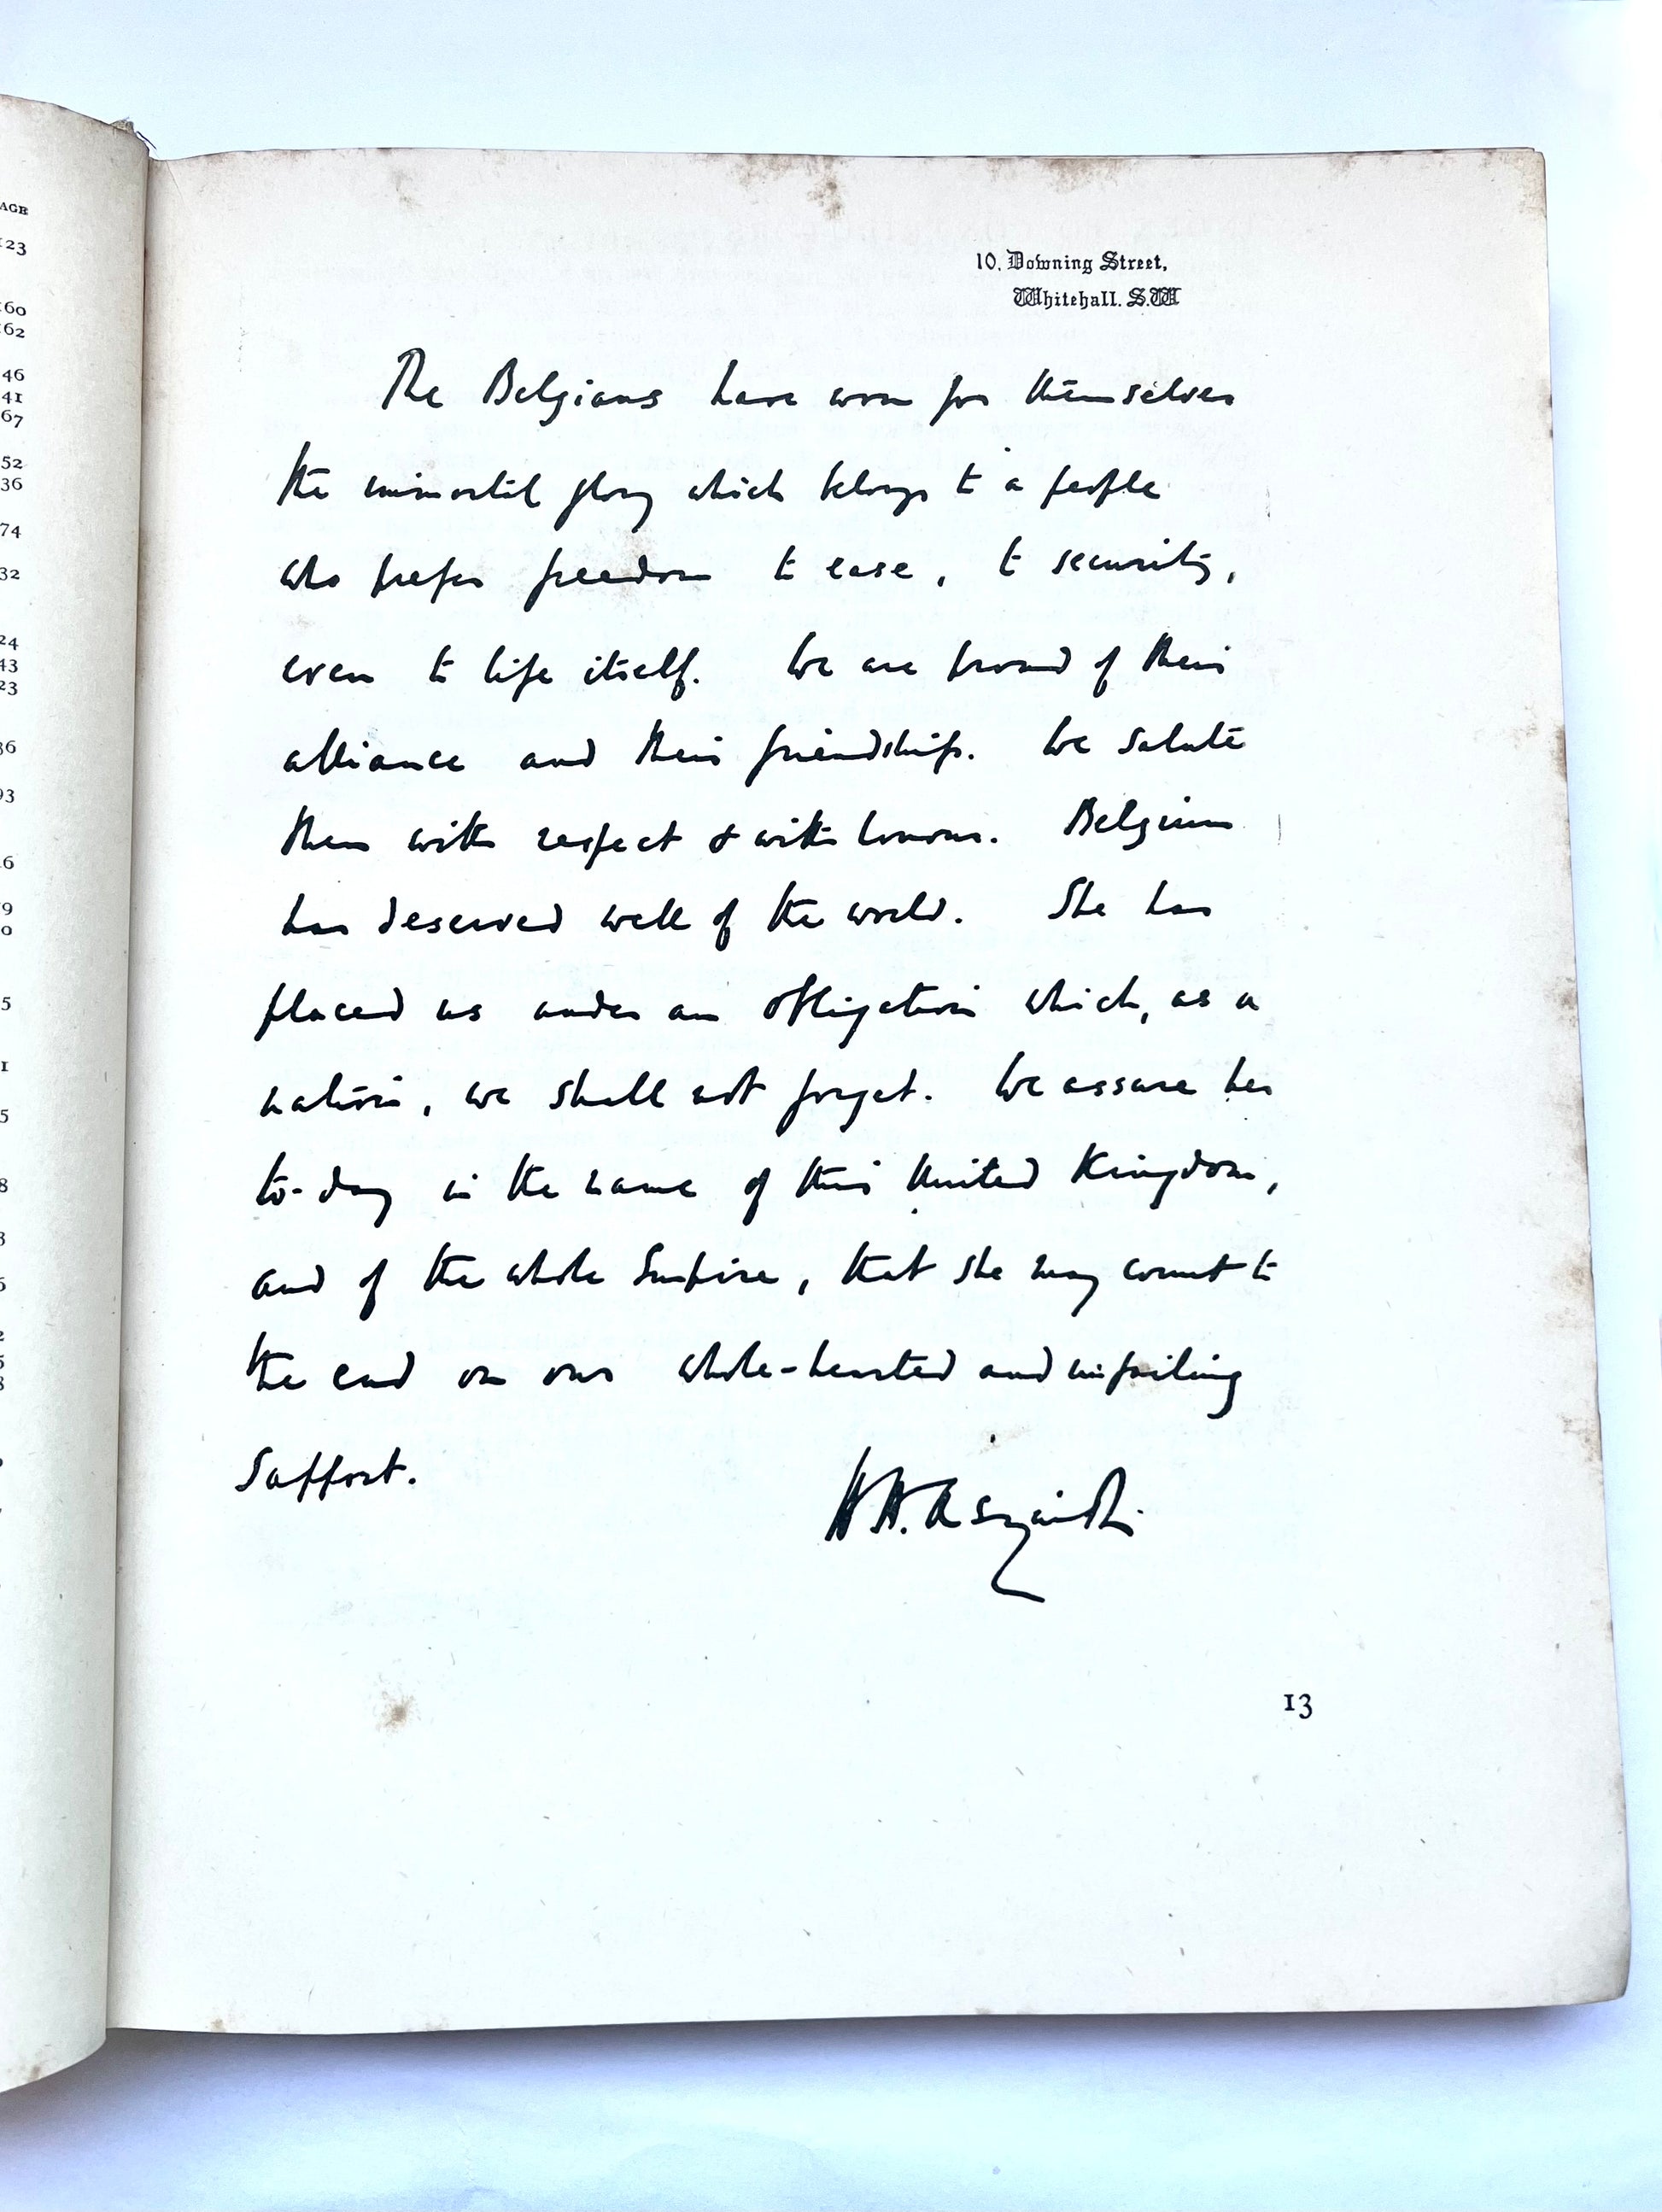 AGE
123
160
162
46
41
67
52
36
74
32
24
43
23
36
93
16
79
0
5
1
5
8
3
6
2
5
8
10, Downing Street,
Whitehall. S.W
The Belgians have won for themselves
the immortal glory which belongs to a people
who prefer freedom to ease, to security,
even to life itself. We are proud of their
alliance and their friendship. We salute
them with respect & with honour. Belgium
has deserved well of the world. She has
placed us under an obligation which, as a
nation, we shall not forget. We assure her
to-day in the name of this United Kingdom,
and of the whole Empire, that she may count to
the end on our whole-hearted and unfailing
support.
H. H. Asquith
13